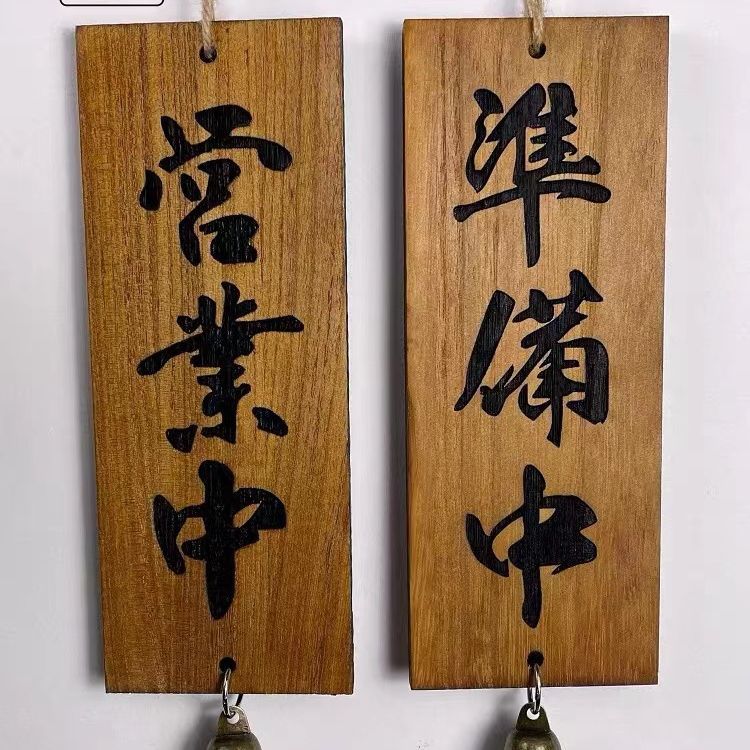 営業中
準備中